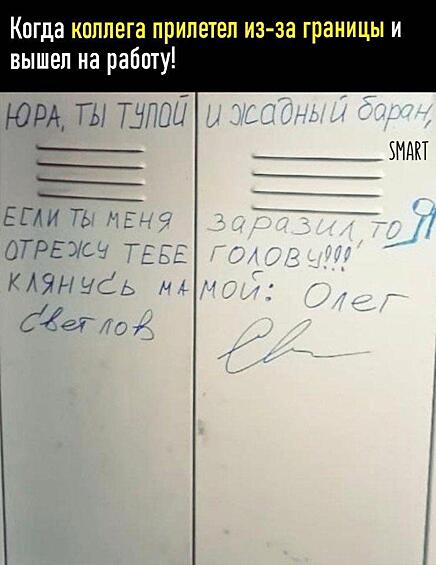 Когда коллега прилетел из-за границы и
вышел на работу!
ЮРА, ТЫ ТУПОЙ и жадный баран,
SMART
ЕСЛИ ТЫ МЕНЯ заразил, то Я
ОТРЕЖУ ТЕБЕ ГОЛОВУ!!!
КЛЯНУСЬ МАМОЙ: Олег
Светлов